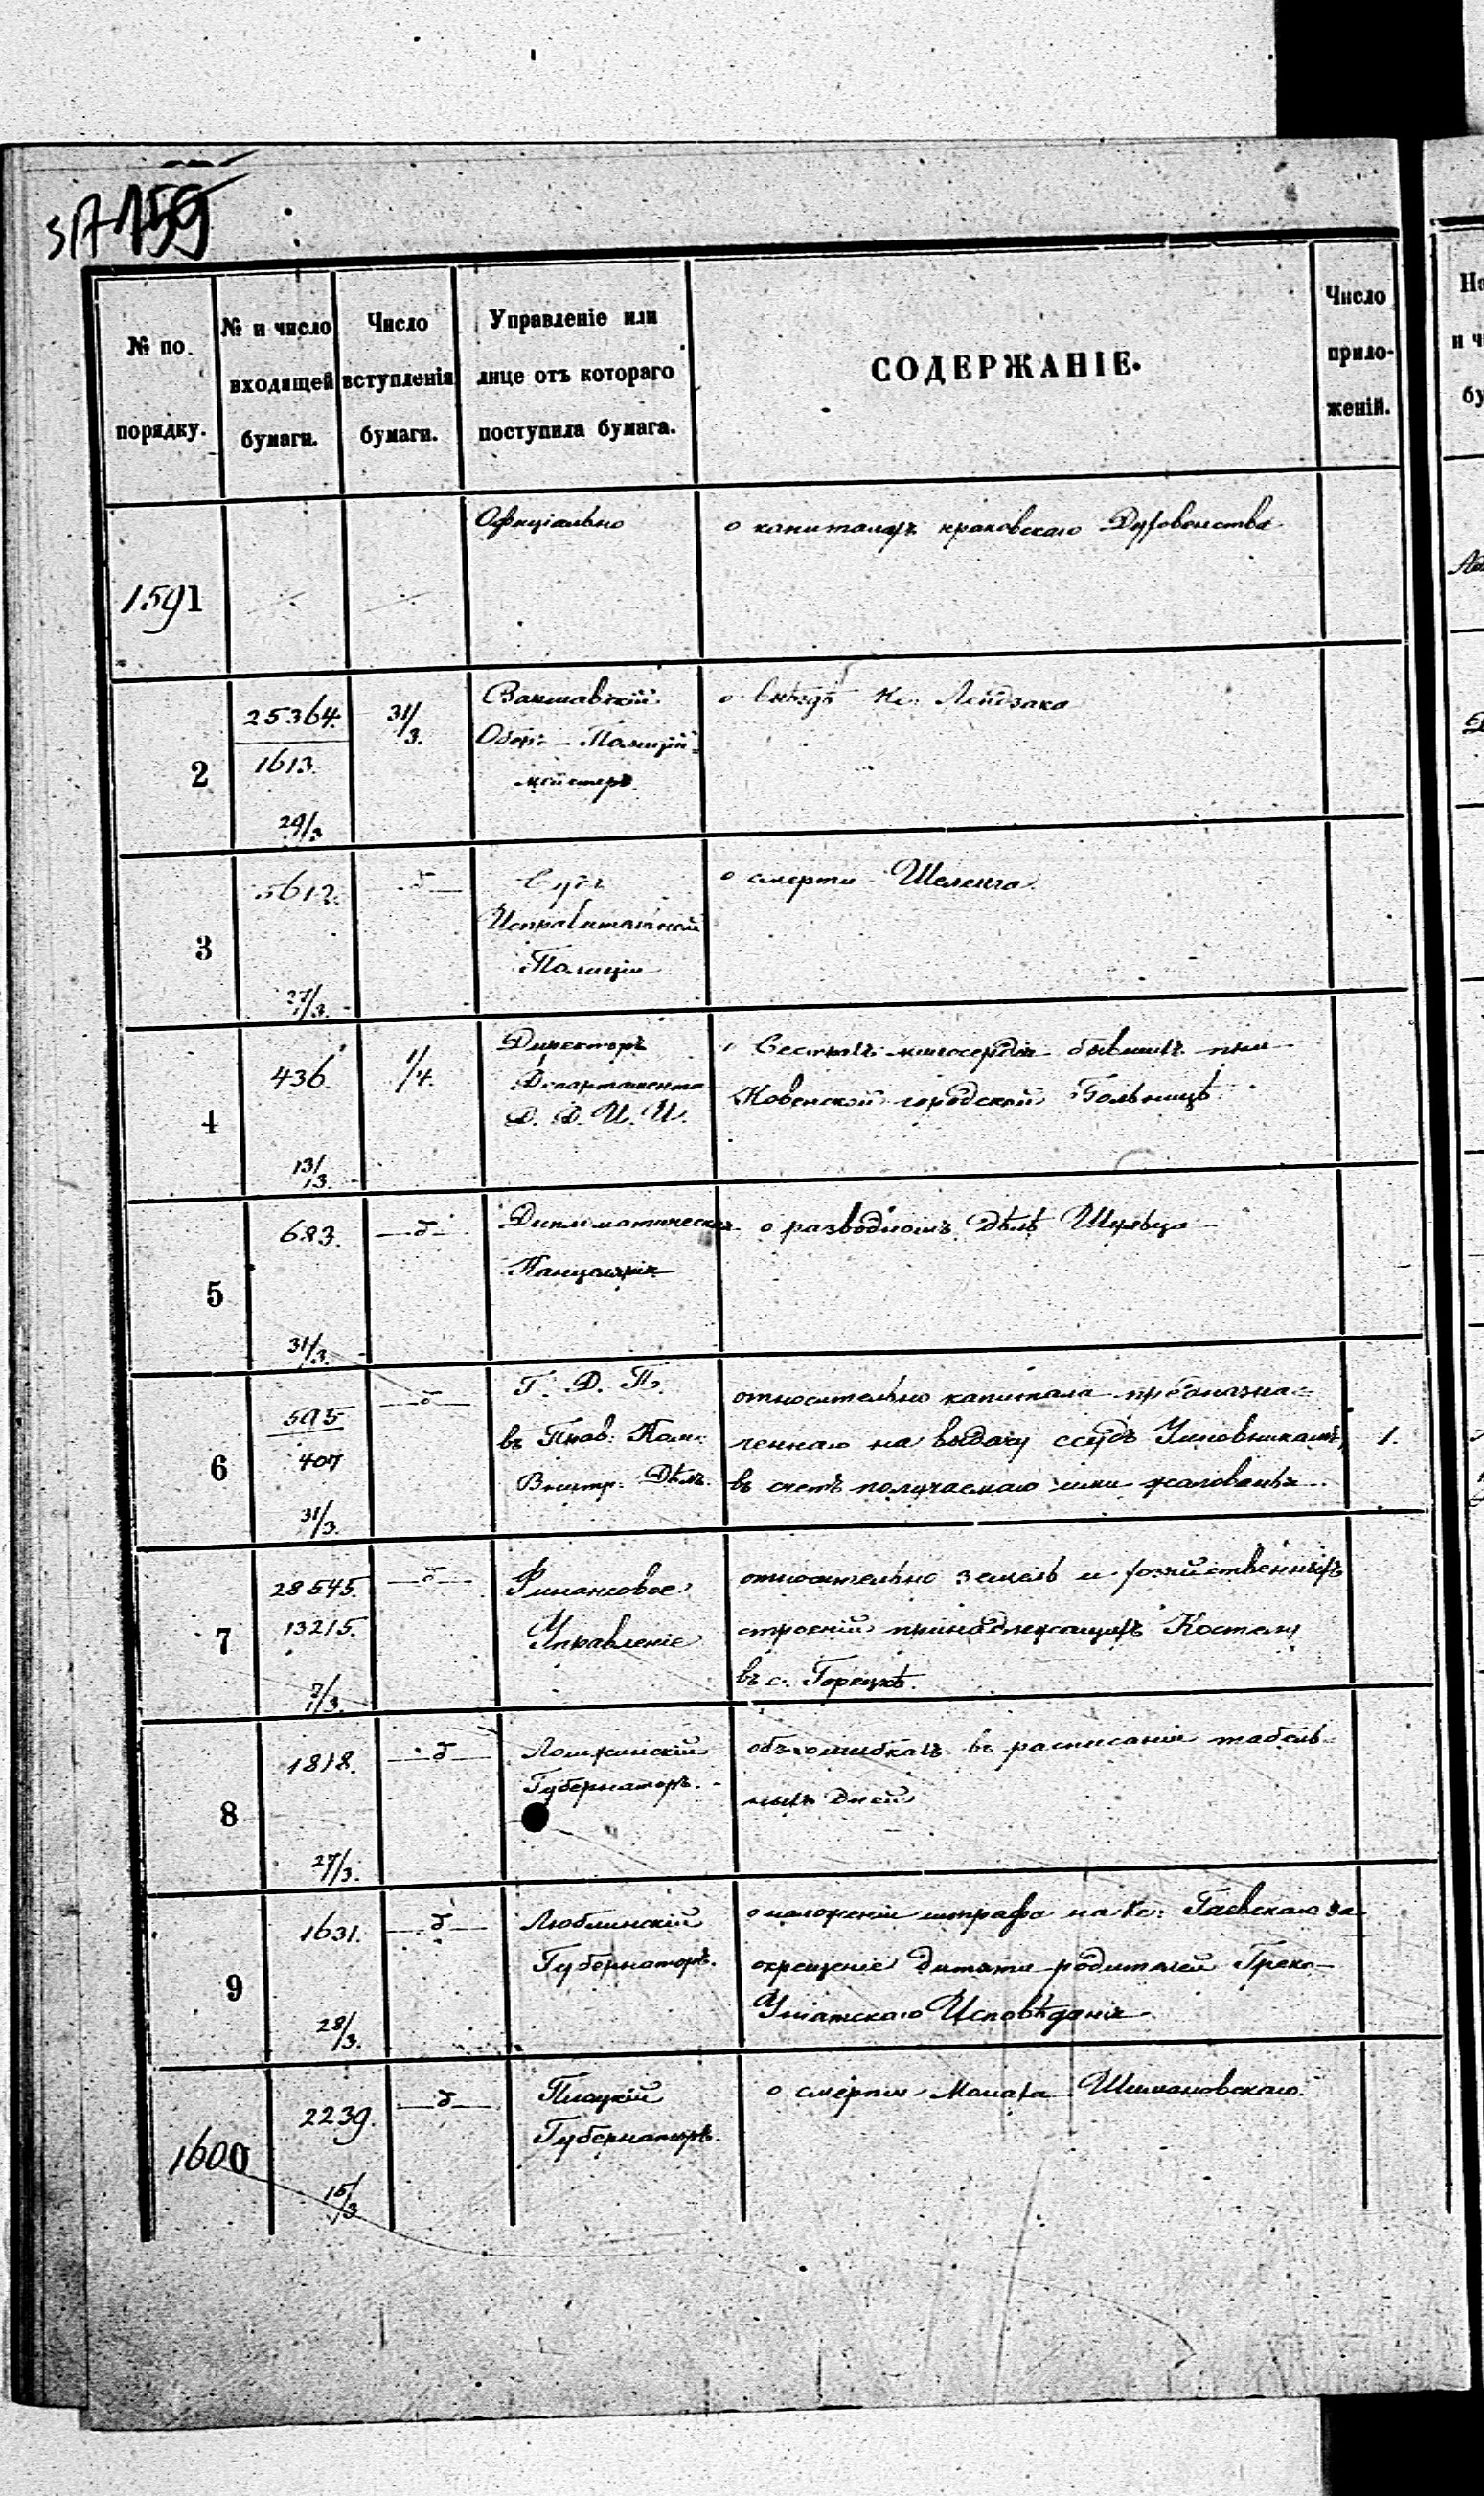 159
№ по порядку.
№ и число входящей бумаги.
Число вступленія бумаги.
Управленіе или лице отъ котораго поступила бумага.
СОДЕРЖАНІЕ.
Число приложеній.
1591
Офиціально
о капиталахъ краковскаго Духовенства
2
25364.
1613.
29/3
31/3.
Варшавскій
Оберъ-Полиціи-
мейстеръ
о Кс. Лендзака
3
5612.
27/3.
Судъ
Исправительной
Полиціи
о смерти Шеленга
4
436.
13/3.
1/4.
Директоръ
Департамента
Д. Д. И. И.
о Сестрахъ милосердія бывшихъ при
Ковенской городской Больницѣ
5
683.
31/3.
Дипломатическая
Канцелярія
о разводномъ дѣлѣ Шульца
6
595
407
31/3.
Г. Д. П.
въ Прав. Ком.
Внутр. Дѣлъ.
относительно капитала предназна-
ченнаго на выдачу ссудъ Чиновникамъ,
въ счетъ получаемаго ими жалованья.
1.
7
28545.
13215.
7/3.
Финансовое
Управленіе
относительно земель и хозяйственныхъ
строеній принадлежащихъ Костелу
въ с. Горецкѣ.
8
1818.
27/3.
Ломжинскій
Губернаторъ.
объ ошибкахъ въ расписаніи табель-
ныхъ дней
9
1631.
28/3.
Люблинскій
Губернаторъ.
о наложеніи штрафа на Кс. Гаевскаго за
окрещеніе дитяти родителей Греко-
Уніатскаго Исповѣданія
1600
2239.
15/3
Плоцкій
Губернаторъ.
о смерти Монаха Шимановскаго.